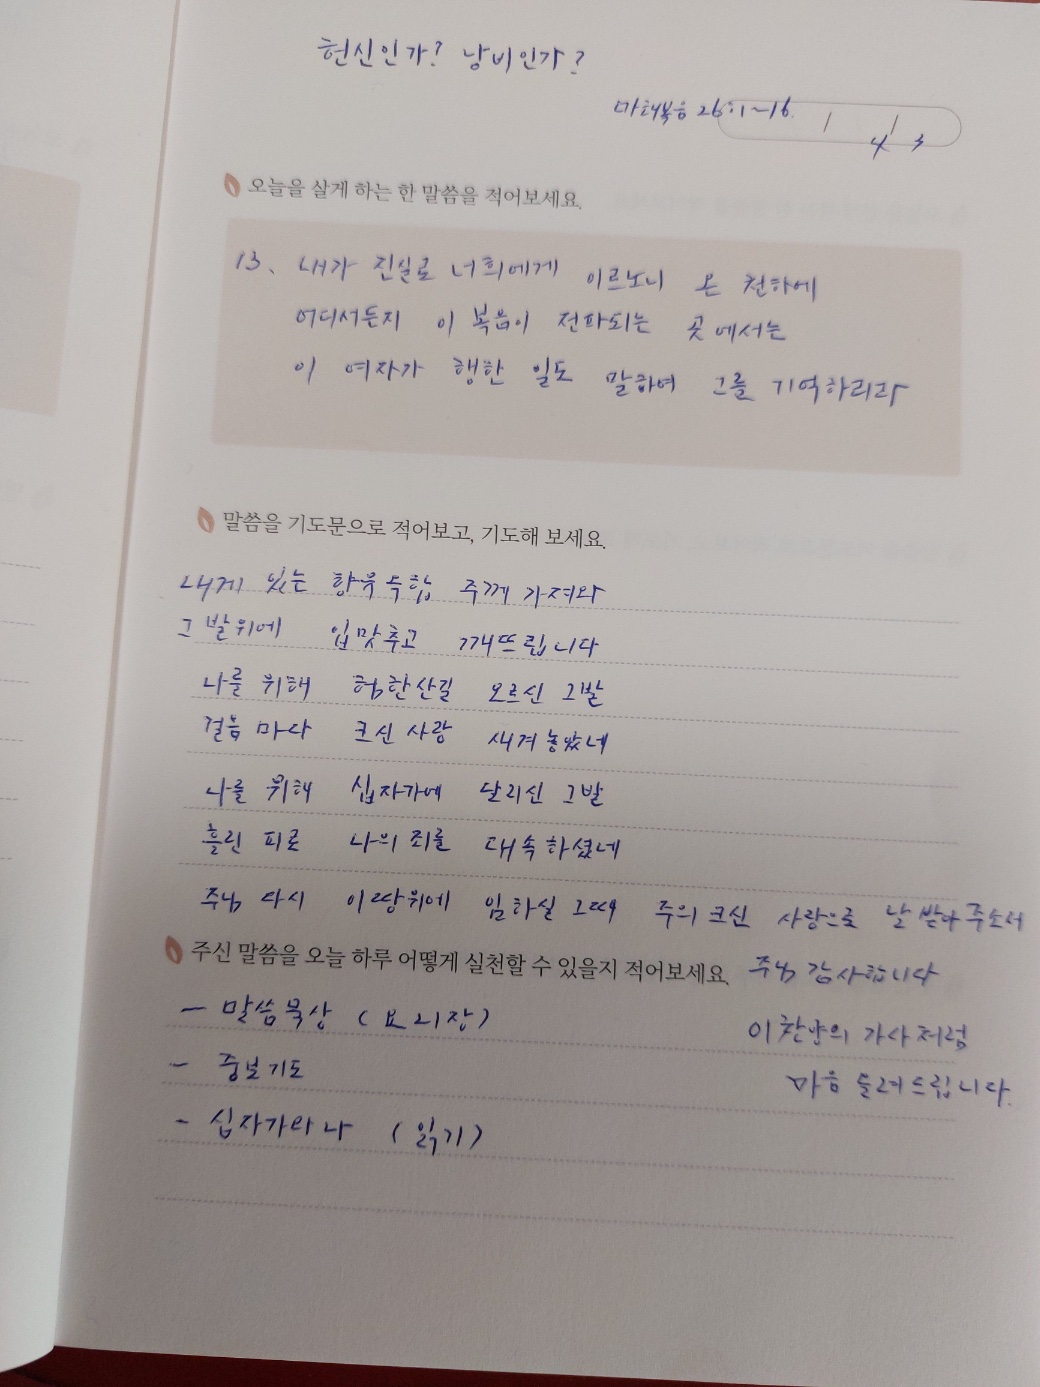 헌신인가? 낭비인가?
마태복음 26:1~16.
/ /
4 3
오늘을 살게 하는 한 말씀을 적어보세요.
13. 내가 진실로 너희에게 이르노니 온 천하에
어디서든지 이 복음이 전파되는 곳에서는
이 여자가 행한 일도 말하여 그를 기억하리라
말씀을 기도문으로 적어보고, 기도해 보세요.
내게 있는 향유옥합 주께 가져와
그 발위에 입맞추고 깨뜨립니다
나를 위해 험한산길 오르신 그발
걸음 마다 크신 사랑 새겨 놓았네
나를 위해 십자가에 달리신 그발
흘린 피로 나의 죄를 대속하셨네
주님 다시 이땅위에 임하실 그때 주의 크신 사랑으로 날 받아 주소서
주신 말씀을 오늘 하루 어떻게 실천할 수 있을지 적어보세요. 주님 감사합니다
- 말씀묵상 (요 21장)
이 찬양의 가사처럼
- 중보기도
마음 올려드립니다.
- 십자가와 나 (읽기)